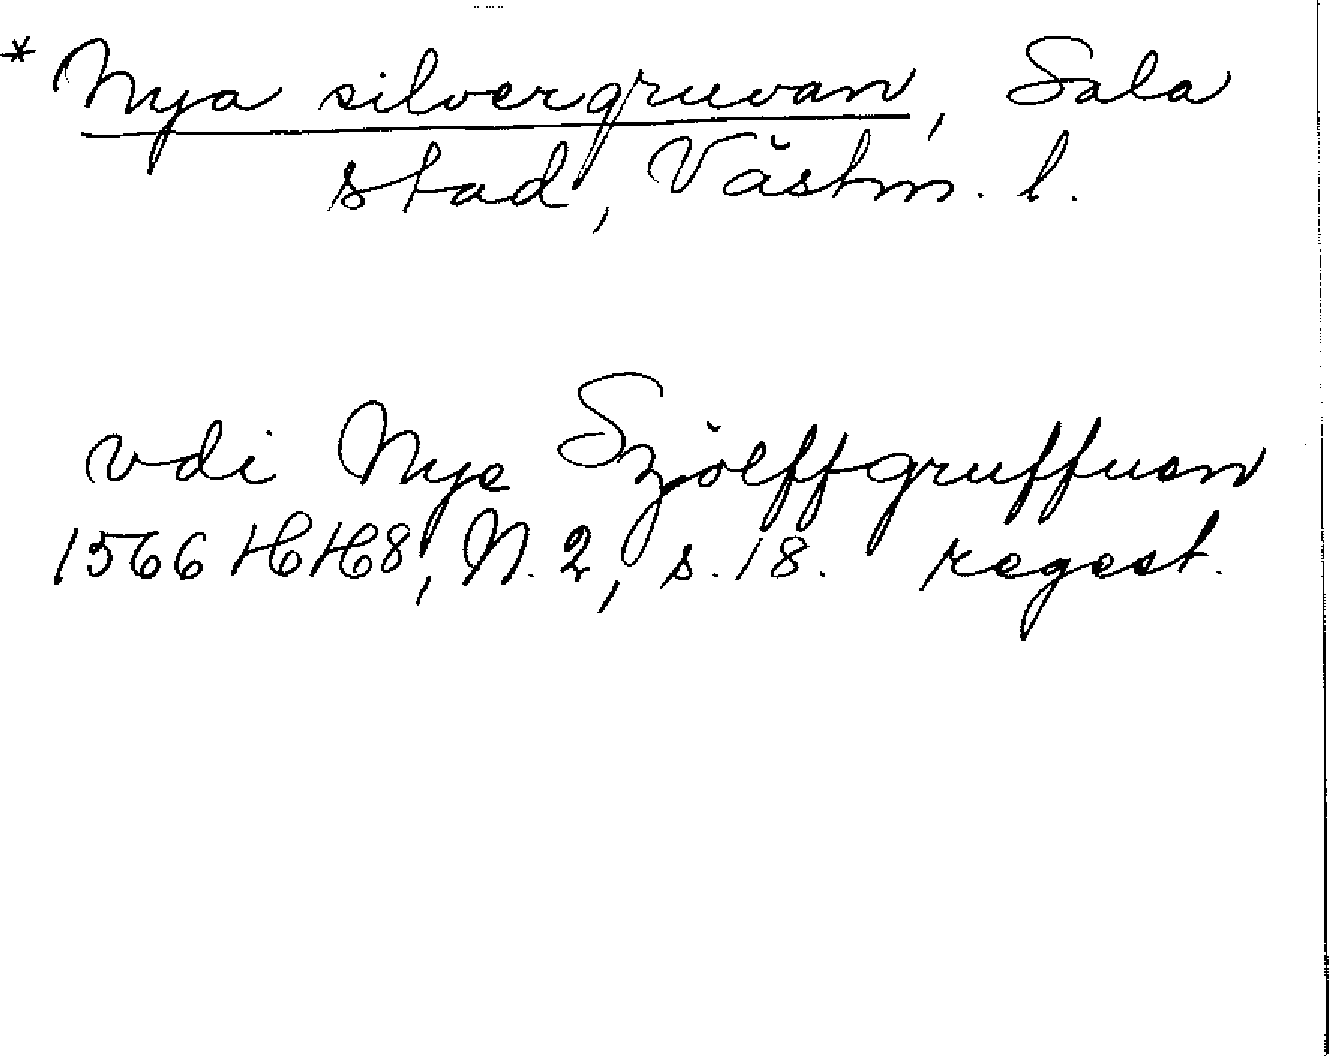 * Nya silvergruvan, Sala
stad, Västm. l.
vdi Nye Szjölffgruffuen
1566 HH8, N. 2, s. 18. regest.